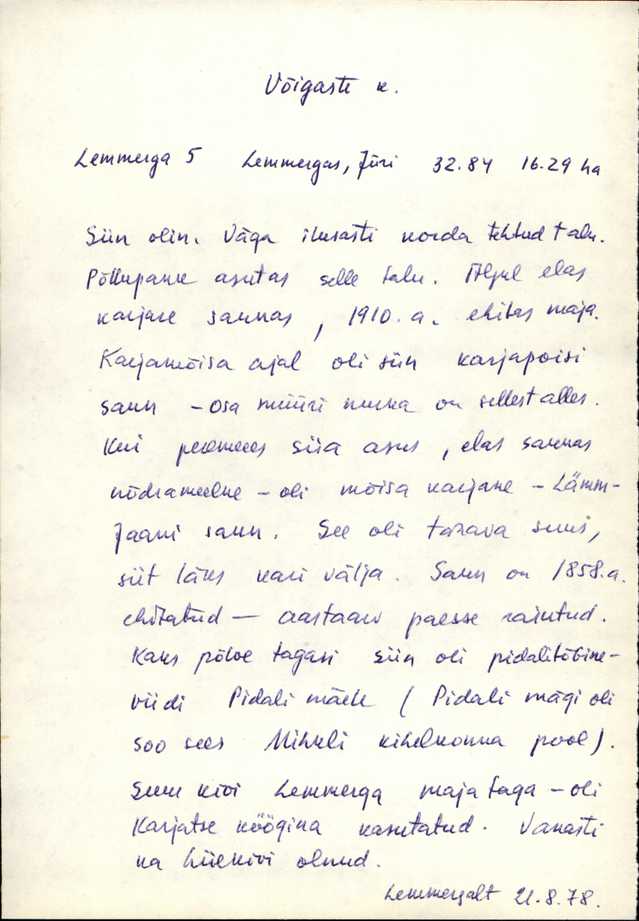 Võigaste k.
Lemmerga 5 Lemmergas, Jüri 32.84 16.29 ha
Siin olin. Väga ilusasti korda tehtud talu.
Põllupank asutas selle talu. Algul elas
karjase saunas, 1910. a. ehitas maja.
Karjamõisa ajal oli siin karjapoisi
saun - osa müüri nurka on sellest alles.
Kui peremees siia asus, elas saunas
nõdrameelne - oli mõisa karjane - Lämm-
Jaani saun. See oli tarava suus,
siit läks kari välja. Saun on 1858.a.
ehitatud — aastaarv paesse raiutud.
Kaks põlve tagasi siin oli pidalitõbine-
viidi Pidali mäele (Pidali mägi oli
soo sees Mihkli kihelkonna pool).
Suur kivi Lemmerga maja taga - oli
Karjatse köögina kasutatud. Vanasti
ka hiiekivi olnud.
Lemmergalt 21.8.78.